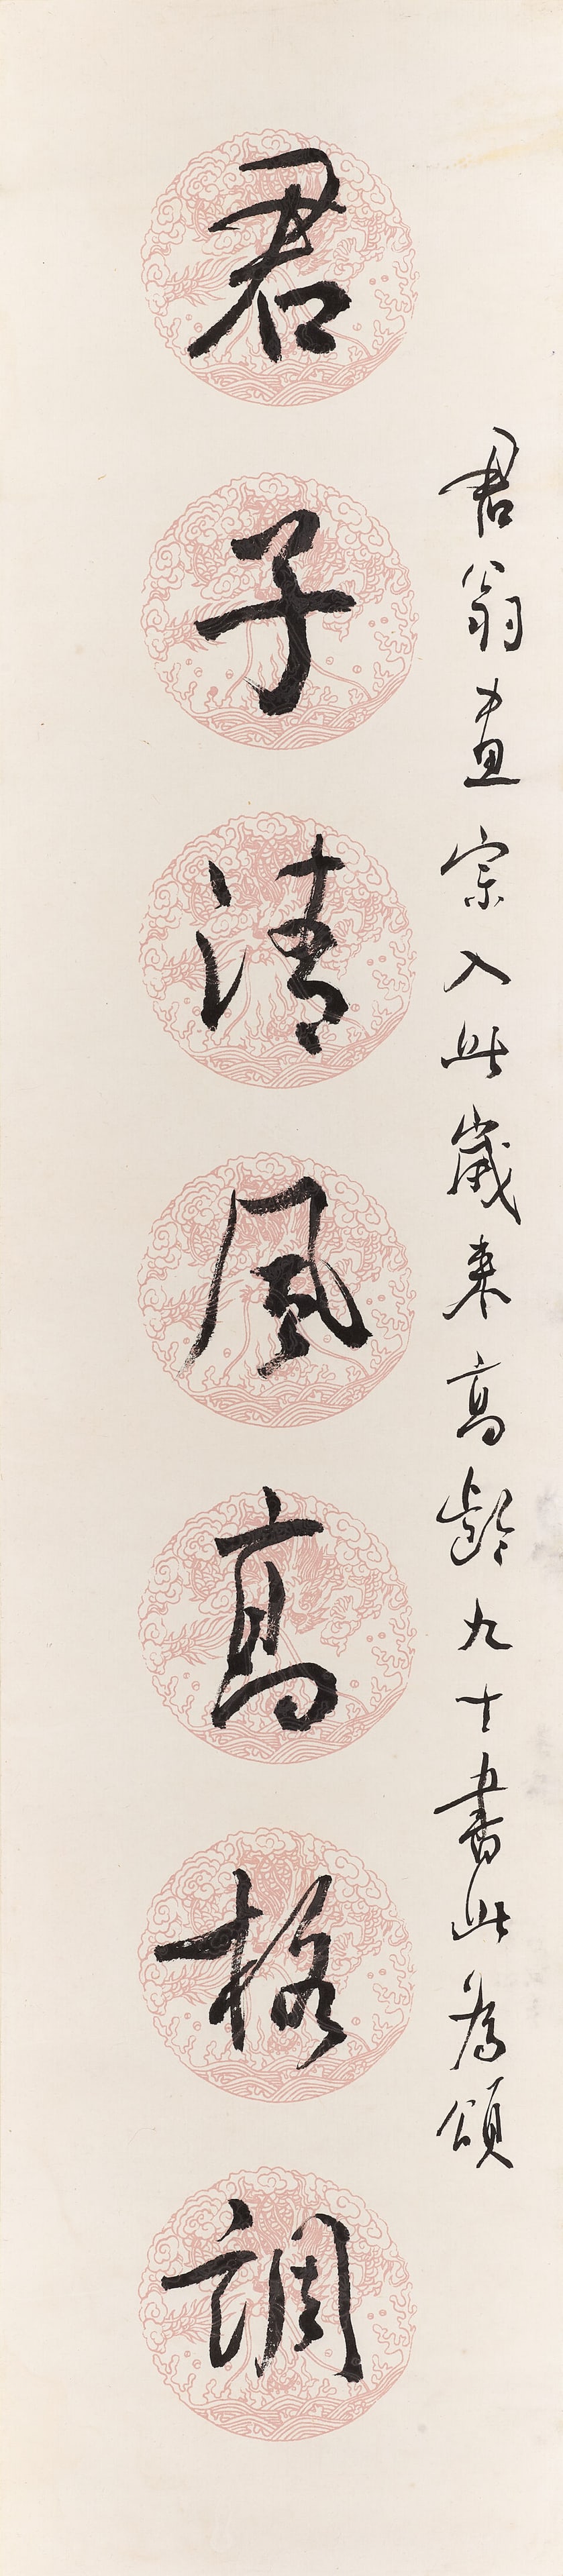 君翁畫宗入此歲來高齡九十書此為頌
君子清風高格調